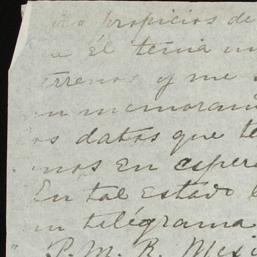 propicios de
él tenia un
terrenos y me
un memoran
os datos que te
mos en espera
En tal estado
un telégrama
P. M. R. Mexi